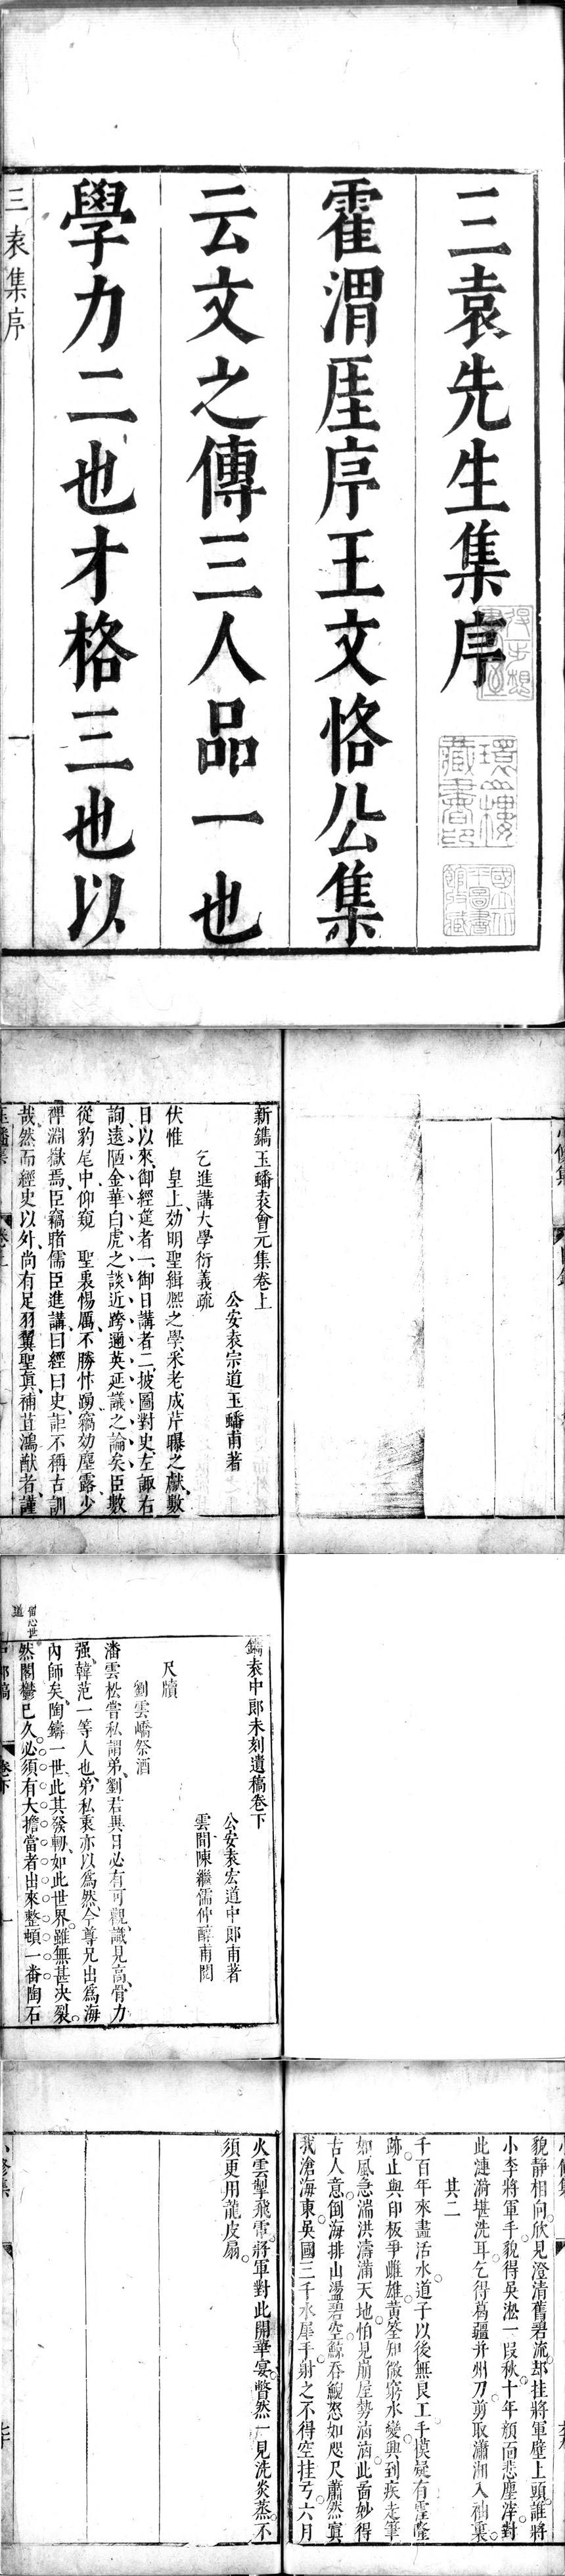 三袁先生集序
霍渭厓序王文恪公集
云文之傳三人品一也
學力二也才格三也以
三袁集序
一
新鐫玉蟠袁會元集卷上
公安袁宗道玉蟠甫著
乞進講大學衍義疏
伏惟 皇上効明聖緝熈之學釆老成芹曝之獻數
日以來御經筵者一御日講者二披圖對史左諏右
詢遠陋金華白虎之談近跨邇英延議之論矣臣數
從豹尾中仰窺 聖衷惕厲不勝忭踴竊効塵露少
裨淵嶽焉臣竊睹儒臣進講曰經曰史詎不稱古訓
哉然而經史以外尚有足羽翼聖真補苴鴻猷者謹
鐫袁中郎未刻遺稿卷下
公安袁宏道中郎甫著
雲間陳繼儒仲醇甫閱
尺牘
劉雲嶠祭酒
潘雲松嘗私謂弟劉君異日必有可觀識見高骨力
强韓范一等人也弟私衷亦以爲然今尊兄出爲海
內師矣陶鑄一世此其發軔如此世界雖無甚决裂
然閣欝已久必須有大擔當者出來整頓一番陶石
卷下
一
貌靜相向欣見澄清舊碧流却挂將軍壁上頭誰將
小李將軍手貌得吳淞一叚秋十年顏面悲塵滓對
此漣漪堪洗耳乞得葛疆并州刀剪取瀟湘入袖裏
其二
千百年來畫活水道子以後無良工手摸疑有霆隆
跡止與印板爭雌雄黃筌知微窮水變興到疾走筆
如風急湍洪濤滿天地怕見崩屋勢洶洶此啚妙得
古人意倒海排山盪碧空鯨吞鯢怒如咫尺蕭然寘
我滄海東吳國三千水犀手射之不得空挂弓六月
火雲掣飛電將軍對此開華宴瞥然一見洗炎蒸不
須更用龍皮扇